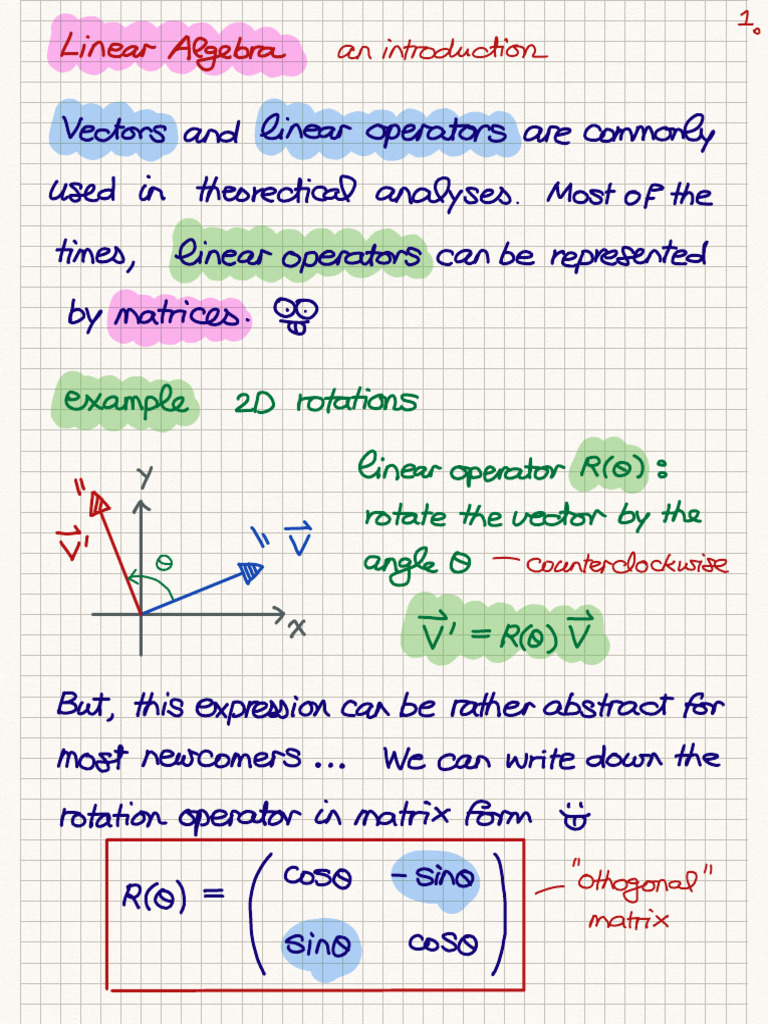 1.
Linear Algebra an introduction
Vectors and linear operators are commonly
used in theorectical analyses. Most of the
times, linear operators can be represented
by matrices.
example 2D rotations
linear operator R(θ):
rotate the vector by the
angle θ — counterclockwise
V⃗' = R(θ) V⃗
y
" V⃗'
θ
" V⃗
x
But, this expression can be rather abstract for
most newcomers... We can write down the
rotation operator in matrix form
R(θ) = ( cosθ -sinθ
sinθ cosθ )
— "othogonal"
matrix